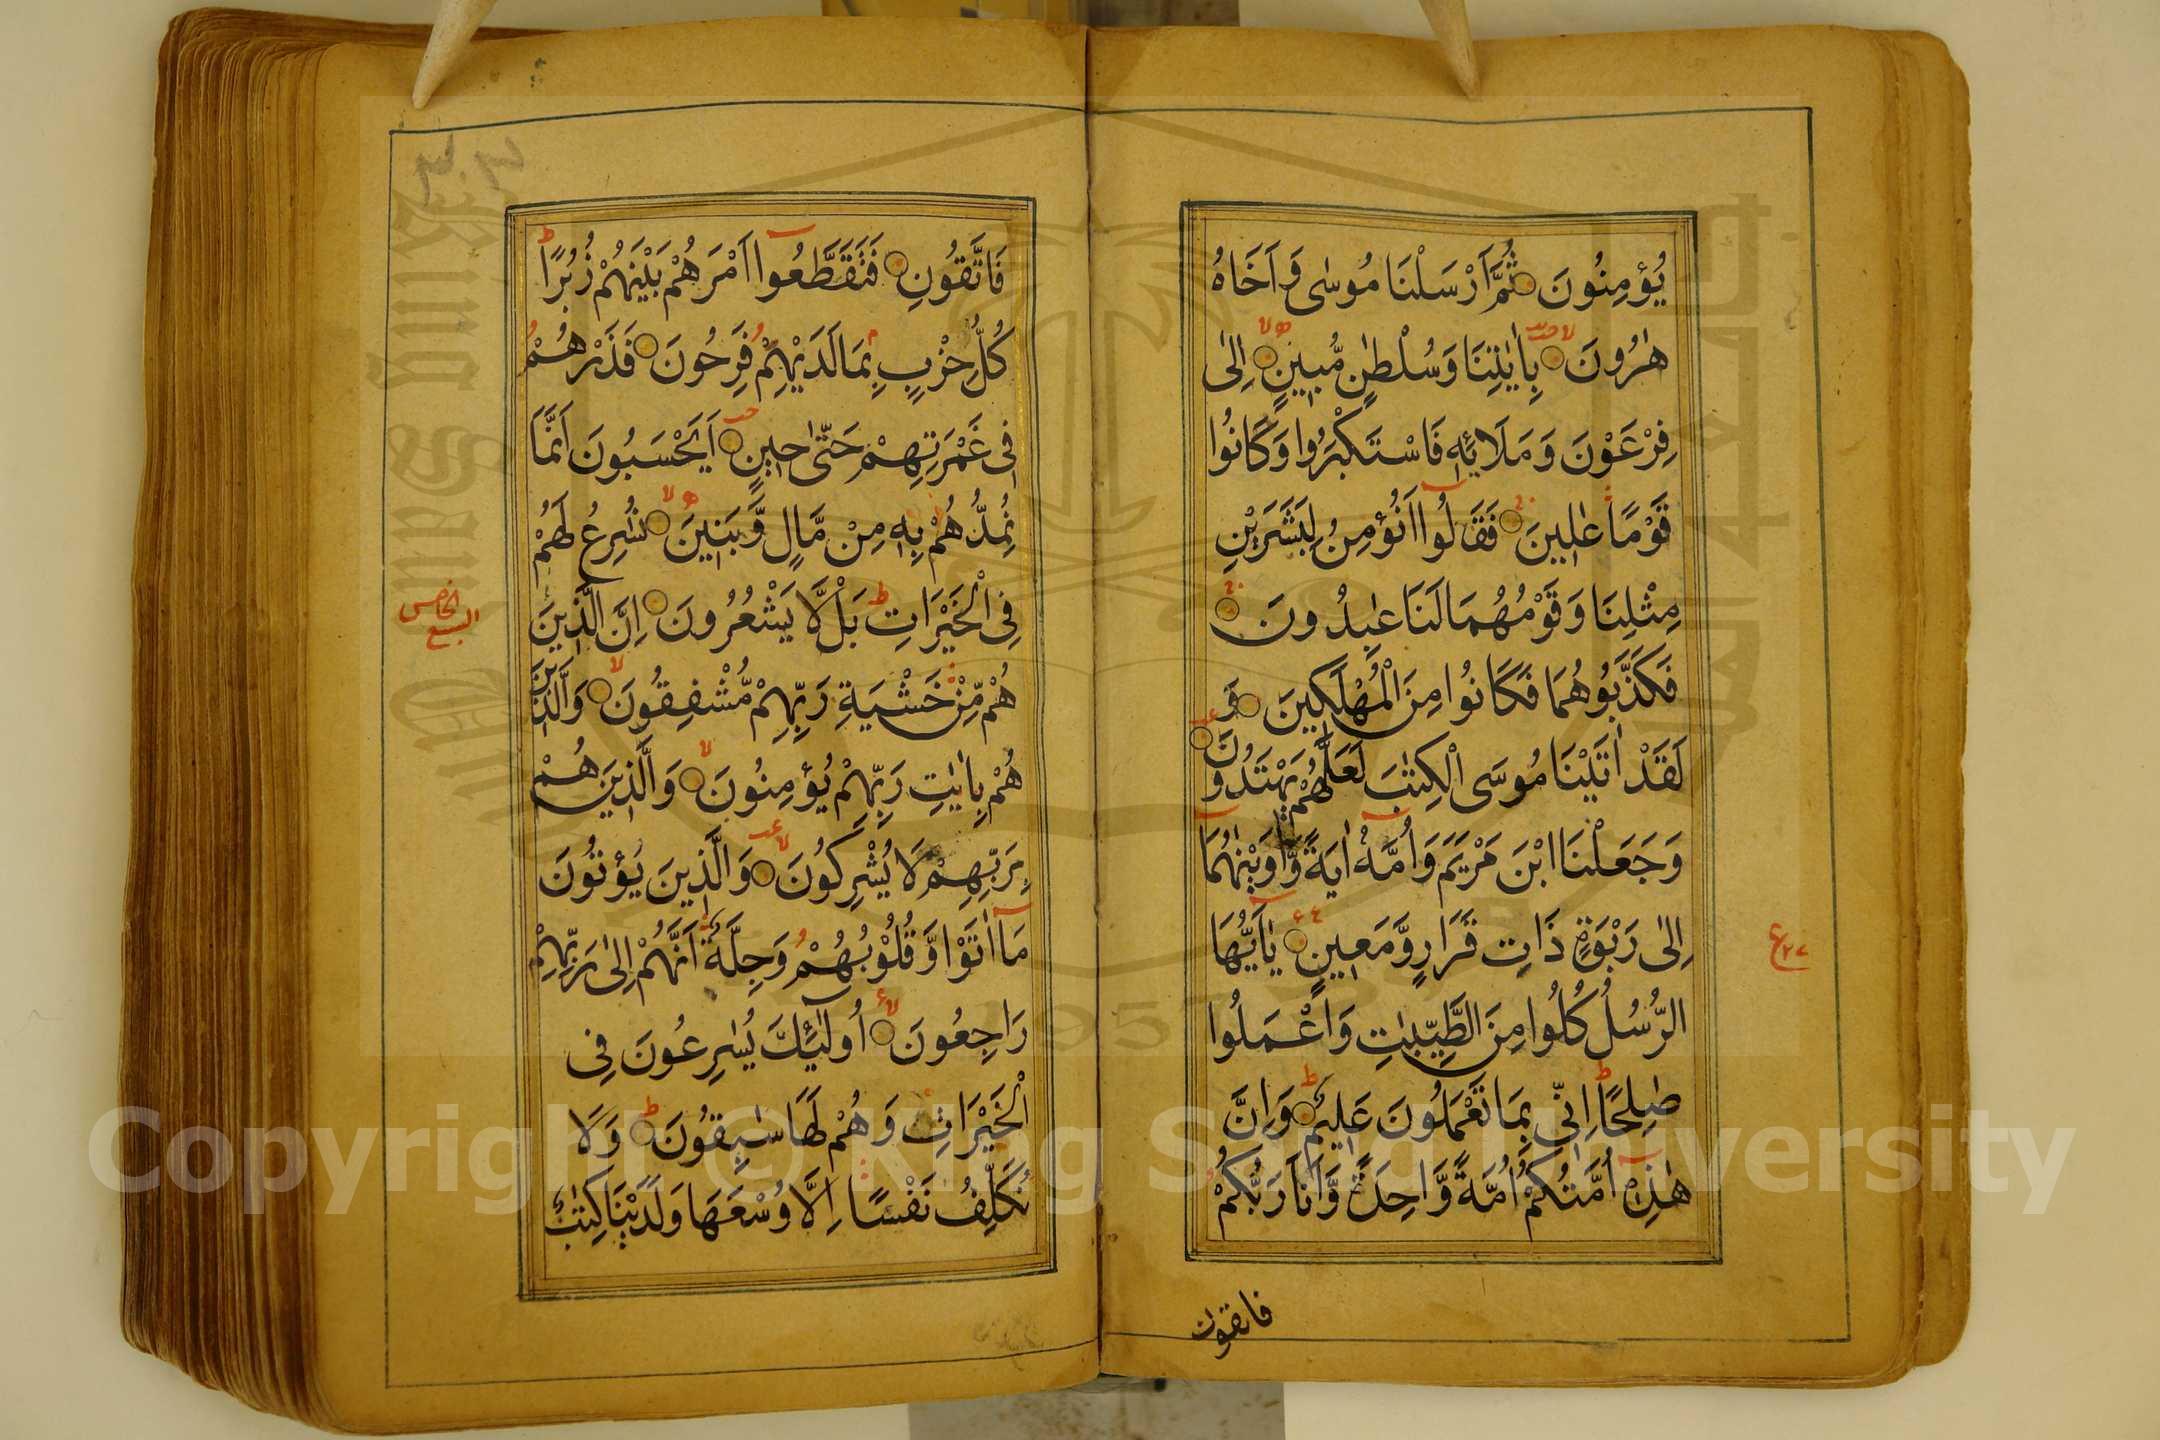 يُؤْمِنُونَ ثُمَّ اَرْسَلْنَا مُوسٰى وَ اَخَاهُ
هٰرُونَ بِاٰيٰتِنَا وَسُلْطٰنٍ مُّبِينٍ اِلٰى
فِرْعَوْنَ وَمَلَائِهٖ فَاسْتَكْبَرُوا وَكَانُوا
قَوْمًا عٰلِينَ فَقَالُوا اَنُؤْمِنُ لِبَشَرَيْنِ
مِثْلِنَا وَقَوْمُهُمَا لَنَا عٰبِدُونَ
فَكَذَّبُوهُمَا فَكَانُوا مِنَ الْمُهْلَكِينَ وَ
لَقَدْ اٰتَيْنَا مُوسَى الْكِتٰبَ لَعَلَّهُمْ يَهْتَدُونَ
وَجَعَلْنَا ابْنَ مَرْيَمَ وَاُمَّهٗ اٰيَةً وَّاٰوَيْنٰهُمَا
اِلٰى رَبْوَةٍ ذَاتِ قَرَارٍ وَّمَعِينٍ يٰاَيُّهَا
الرُّسُلُ كُلُوا مِنَ الطَّيِّبٰتِ وَاعْمَلُوا
صٰلِحًا اِنِّي بِمَا تَعْمَلُونَ عَلِيمٌ وَاِنَّ
هٰذِهٖ اُمَّتُكُمْ اُمَّةً وَّاحِدَةً وَّاَنَا رَبُّكُمْ
فاتقون
فَاتَّقُونِ فَتَقَطَّعُوا اَمْرَهُمْ بَيْنَهُمْ زُبُرًا
كُلُّ حِزْبٍ بِمَا لَدَيْهِمْ فَرِحُونَ فَذَرْهُمْ
فِي غَمْرَتِهِمْ حَتّٰى حِينٍ اَيَحْسَبُونَ اَنَّمَا
نُمِدُّهُمْ بِهٖ مِنْ مَّالٍ وَّبَنِينَ نُسَارِعُ لَهُمْ
فِي الْخَيْرَاتِ بَلْ لَّا يَشْعُرُونَ اِنَّ الَّذِينَ
هُمْ مِّنْ خَشْيَةِ رَبِّهِمْ مُّشْفِقُونَ وَالَّذِينَ
هُمْ بِاٰيٰتِ رَبِّهِمْ يُؤْمِنُونَ وَالَّذِينَ هُمْ
بِرَبِّهِمْ لَا يُشْرِكُونَ وَالَّذِينَ يُؤْتُونَ
مَا اٰتَوْا وَّقُلُوْبُهُمْ وَجِلَةٌ اَنَّهُمْ اِلٰى رَبِّهِمْ
رَاجِعُونَ اُولٰئِكَ يُسٰرِعُونَ فِي
الْخَيْرَاتِ وَهُمْ لَهَا سٰبِقُونَ وَلَا
نُكَلِّفُ نَفْسًا اِلَّا وُسْعَهَا وَلَدَيْنَا كِتٰبٌ
Copyright © King Saud University